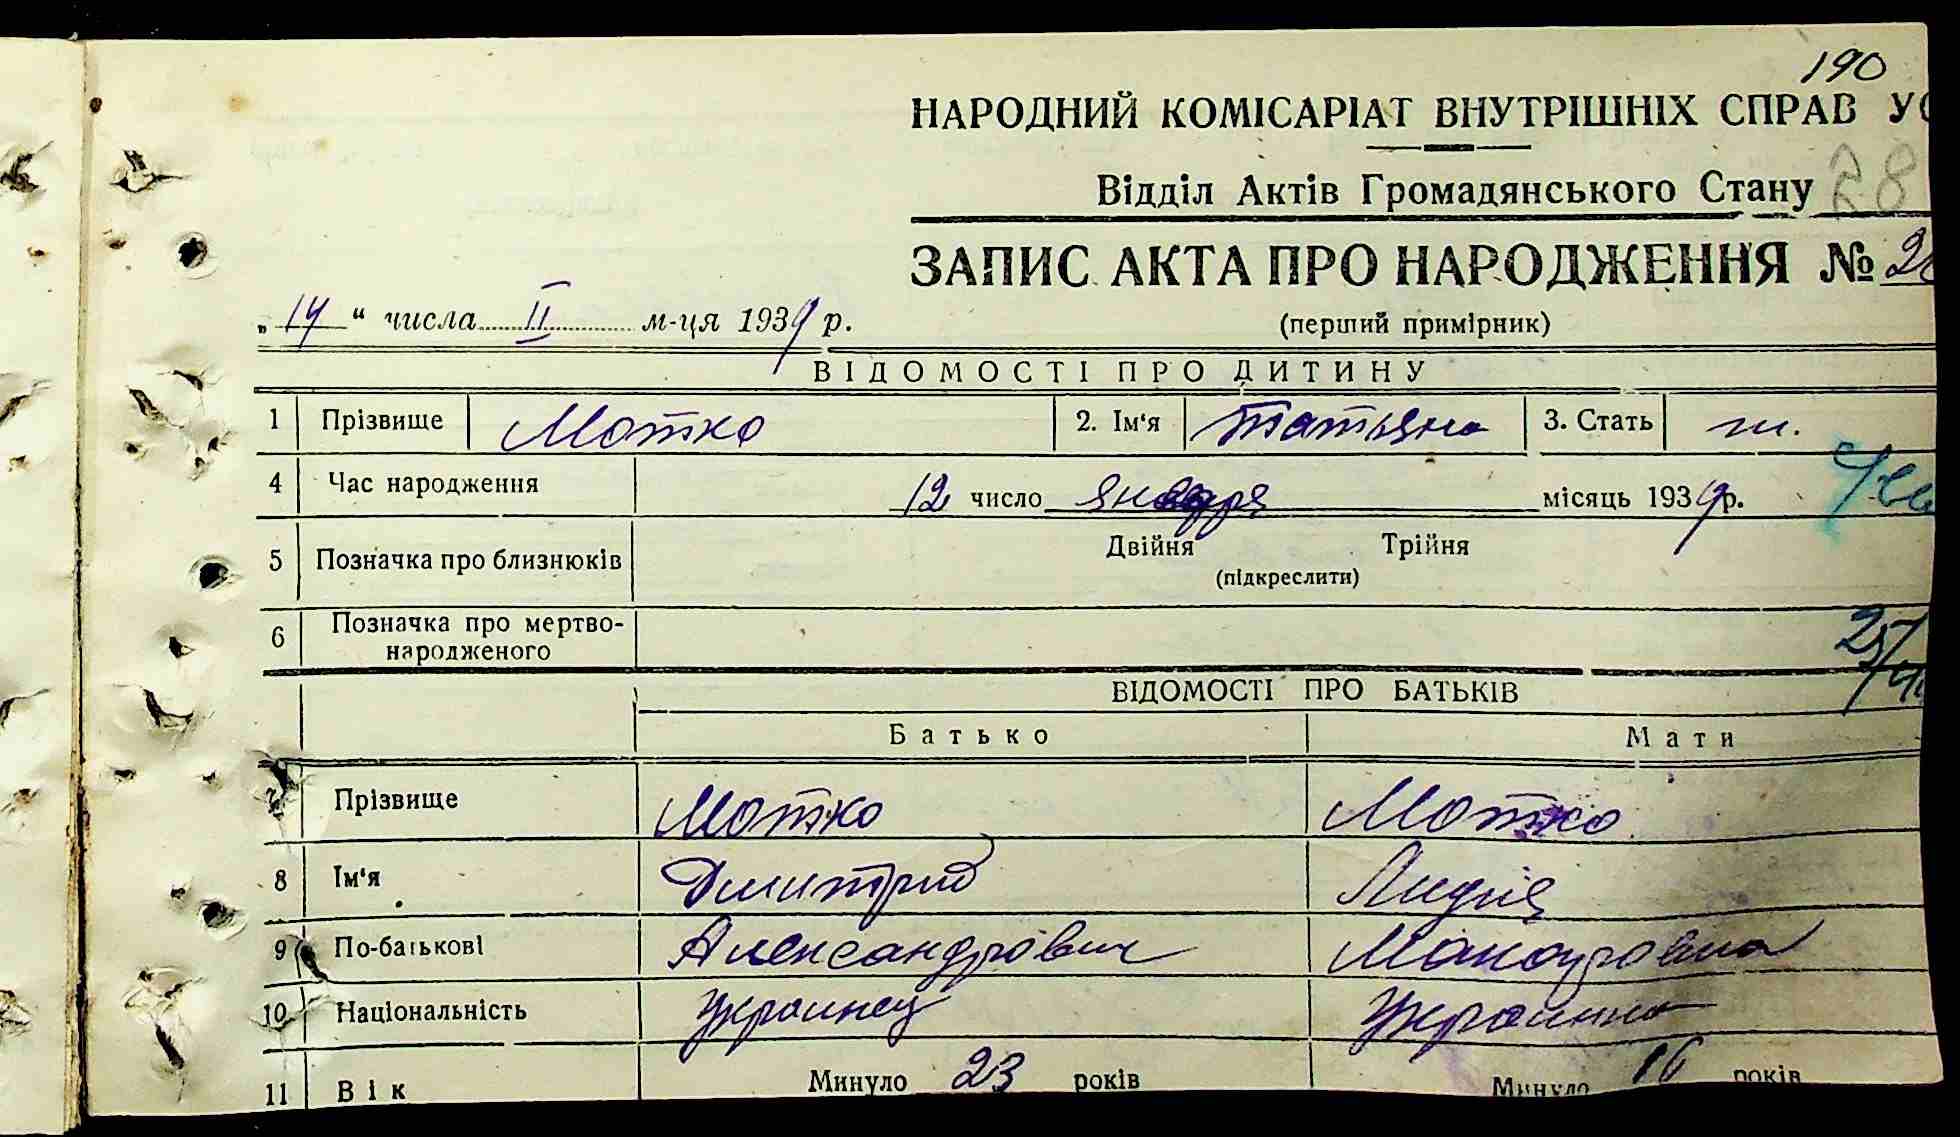 190
НАРОДНИЙ КОМІСАРІАТ ВНУТРІШНІХ СПРАВ
Відділ Актів Громадянського Стану 28
ЗАПИС АКТА ПРО НАРОДЖЕННЯ №
„14“ числа II м-ця 1939 р. (перший примірник)
ВІДОМОСТІ ПРО ДИТИНУ
1 Прізвище Мотко 2. Ім‘я Татьяна 3. Стать ж.
4 Час народження 12 число января місяць 1939 р.
5 Позначка про близнюків Двійня Трійня
(підкреслити)
6 Позначка про мертво-
народженого
ВІДОМОСТІ ПРО БАТЬКІВ
Батько Мати
Прізвище Мотко Мотко
8 Ім‘я Дмитрий Лидия
9 По-батькові Александрович Макаровна
10 Національність Украинец Украинка
11 Вік Минуло 23 років Минуло 16 років